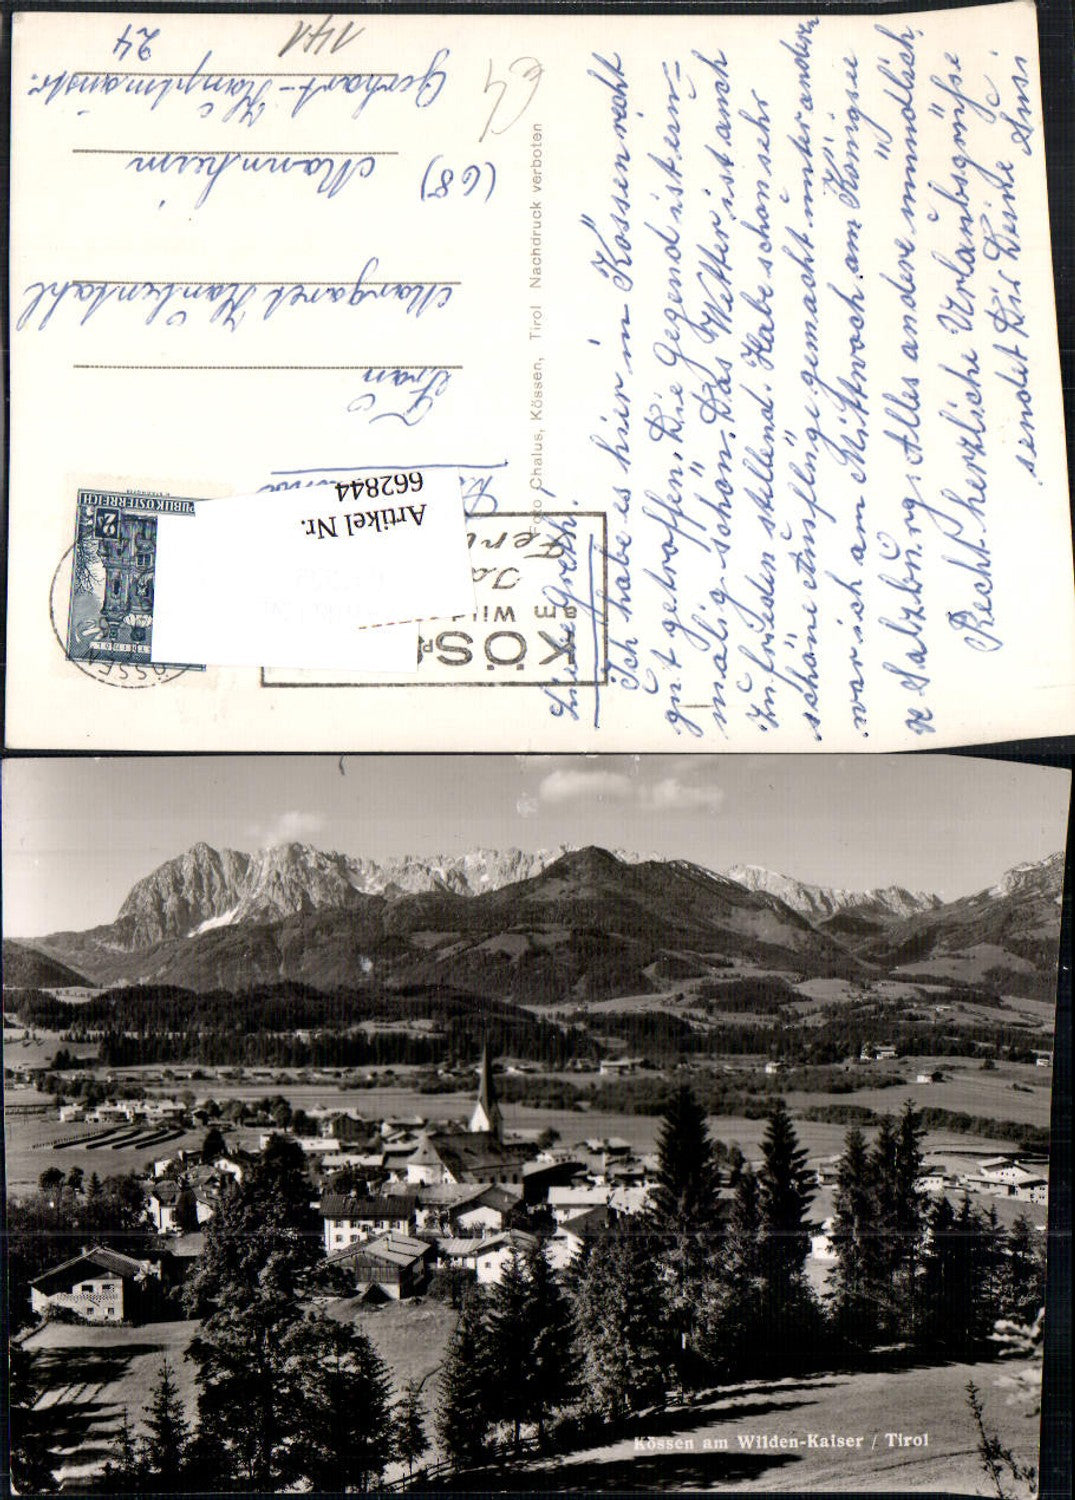 Liebe Gretl!
Ich habe es hier in Kössen recht
gut getroffen. Die Gegend ist ein=
malig schön. Das Wetter ist auch
zufrieden stellend. Habe schon sehr
schöne Ausflüge gemacht unter anderen
war ich am Mittwoch am Königsee
Salzburg. Alles andere mündlich.
Recht herzliche Urlaubsgrüße
sendet Dir Deine Ansi
Foto Chalus, Kössen, Tirol Nachdruck verboten
Frau
Margaret
(68) Mannheim
Gerhart-Hauptmannstr.
24
141
Artikel Nr.
662844
REPUBLIK ÖSTERREICH
2
KÖSS
am WILD
KÖSSEN
Kössen am Wilden-Kaiser / Tirol